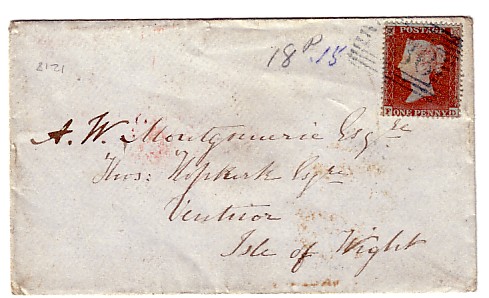 18 P. 15
2121
POSTAGE
ONE PENNY
F D
A. W. Montgomerie Esqre
Thos: Hopkirk Esqre
Ventnor
Isle of Wight